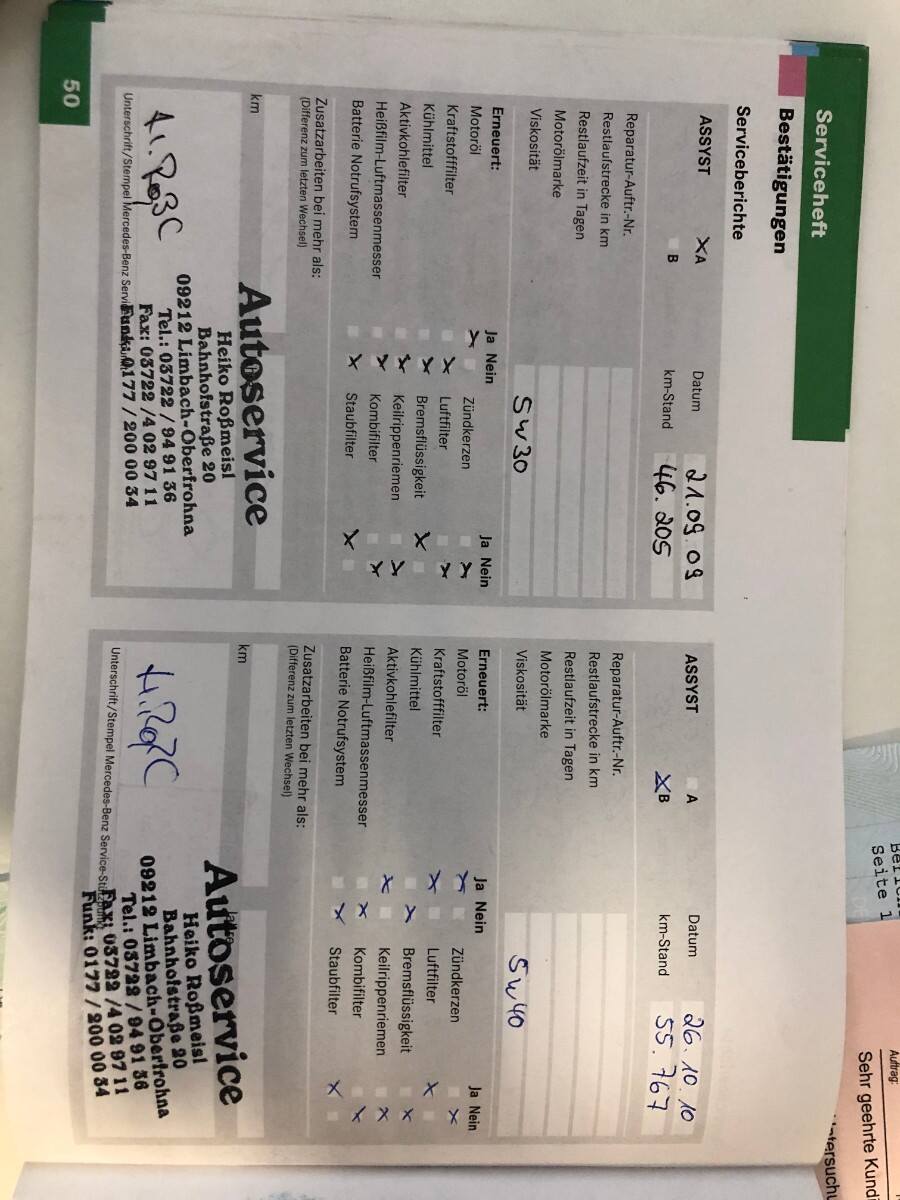 Serviceheft
Bestätigungen
Serviceberichte
ASSYST
XA
B
Datum 21.09.09
km-Stand 46.205
Reparatur-Auftr.-Nr.
Restlaufstrecke in km
Restlaufzeit in Tagen
Motorölmarke
Viskosität 5W30
Erneuert: Ja Nein Ja Nein
Motoröl X Zündkerzen X
Kraftstofffilter X Luftfilter X
Kühlmittel X Bremsflüssigkeit X
Aktivkohlefilter X Keilrippenriemen X
Heißfilm-Luftmassenmesser X Kombifilter X
Batterie Notrufsystem X Staubfilter X
Zusatzarbeiten bei mehr als:
(Differenz zum letzten Wechsel)
km
Autoservice
Heiko Roßmeisl
Bahnhofstraße 20
09212 Limbach-Oberfrohna
Tel.: 03722 / 94 91 36
Fax: 03722 / 4 02 97 11
Funk: 0177 / 200 00 34
Unterschrift/Stempel Mercedes-Benz
50
ASSYST
A
XB
Datum 26.10.10
km-Stand 55.767
Reparatur-Auftr.-Nr.
Restlaufstrecke in km
Restlaufzeit in Tagen
Motorölmarke
Viskosität 5W40
Erneuert: Ja Nein Ja Nein
Motoröl X Zündkerzen X
Kraftstofffilter X Luftfilter X
Kühlmittel X Bremsflüssigkeit X
Aktivkohlefilter X Keilrippenriemen X
Heißfilm-Luftmassenmesser X Kombifilter X
Batterie Notrufsystem X Staubfilter X
Zusatzarbeiten bei mehr als:
(Differenz zum letzten Wechsel)
km
Autoservice
Heiko Roßmeisl
Bahnhofstraße 20
09212 Limbach-Oberfrohna
Tel.: 03722 / 94 91 36
Fax: 03722 / 4 02 97 11
Funk: 0177 / 200 00 34
Unterschrift/Stempel Mercedes-Benz
Seite 1
Auftrag:
Sehr geehrte